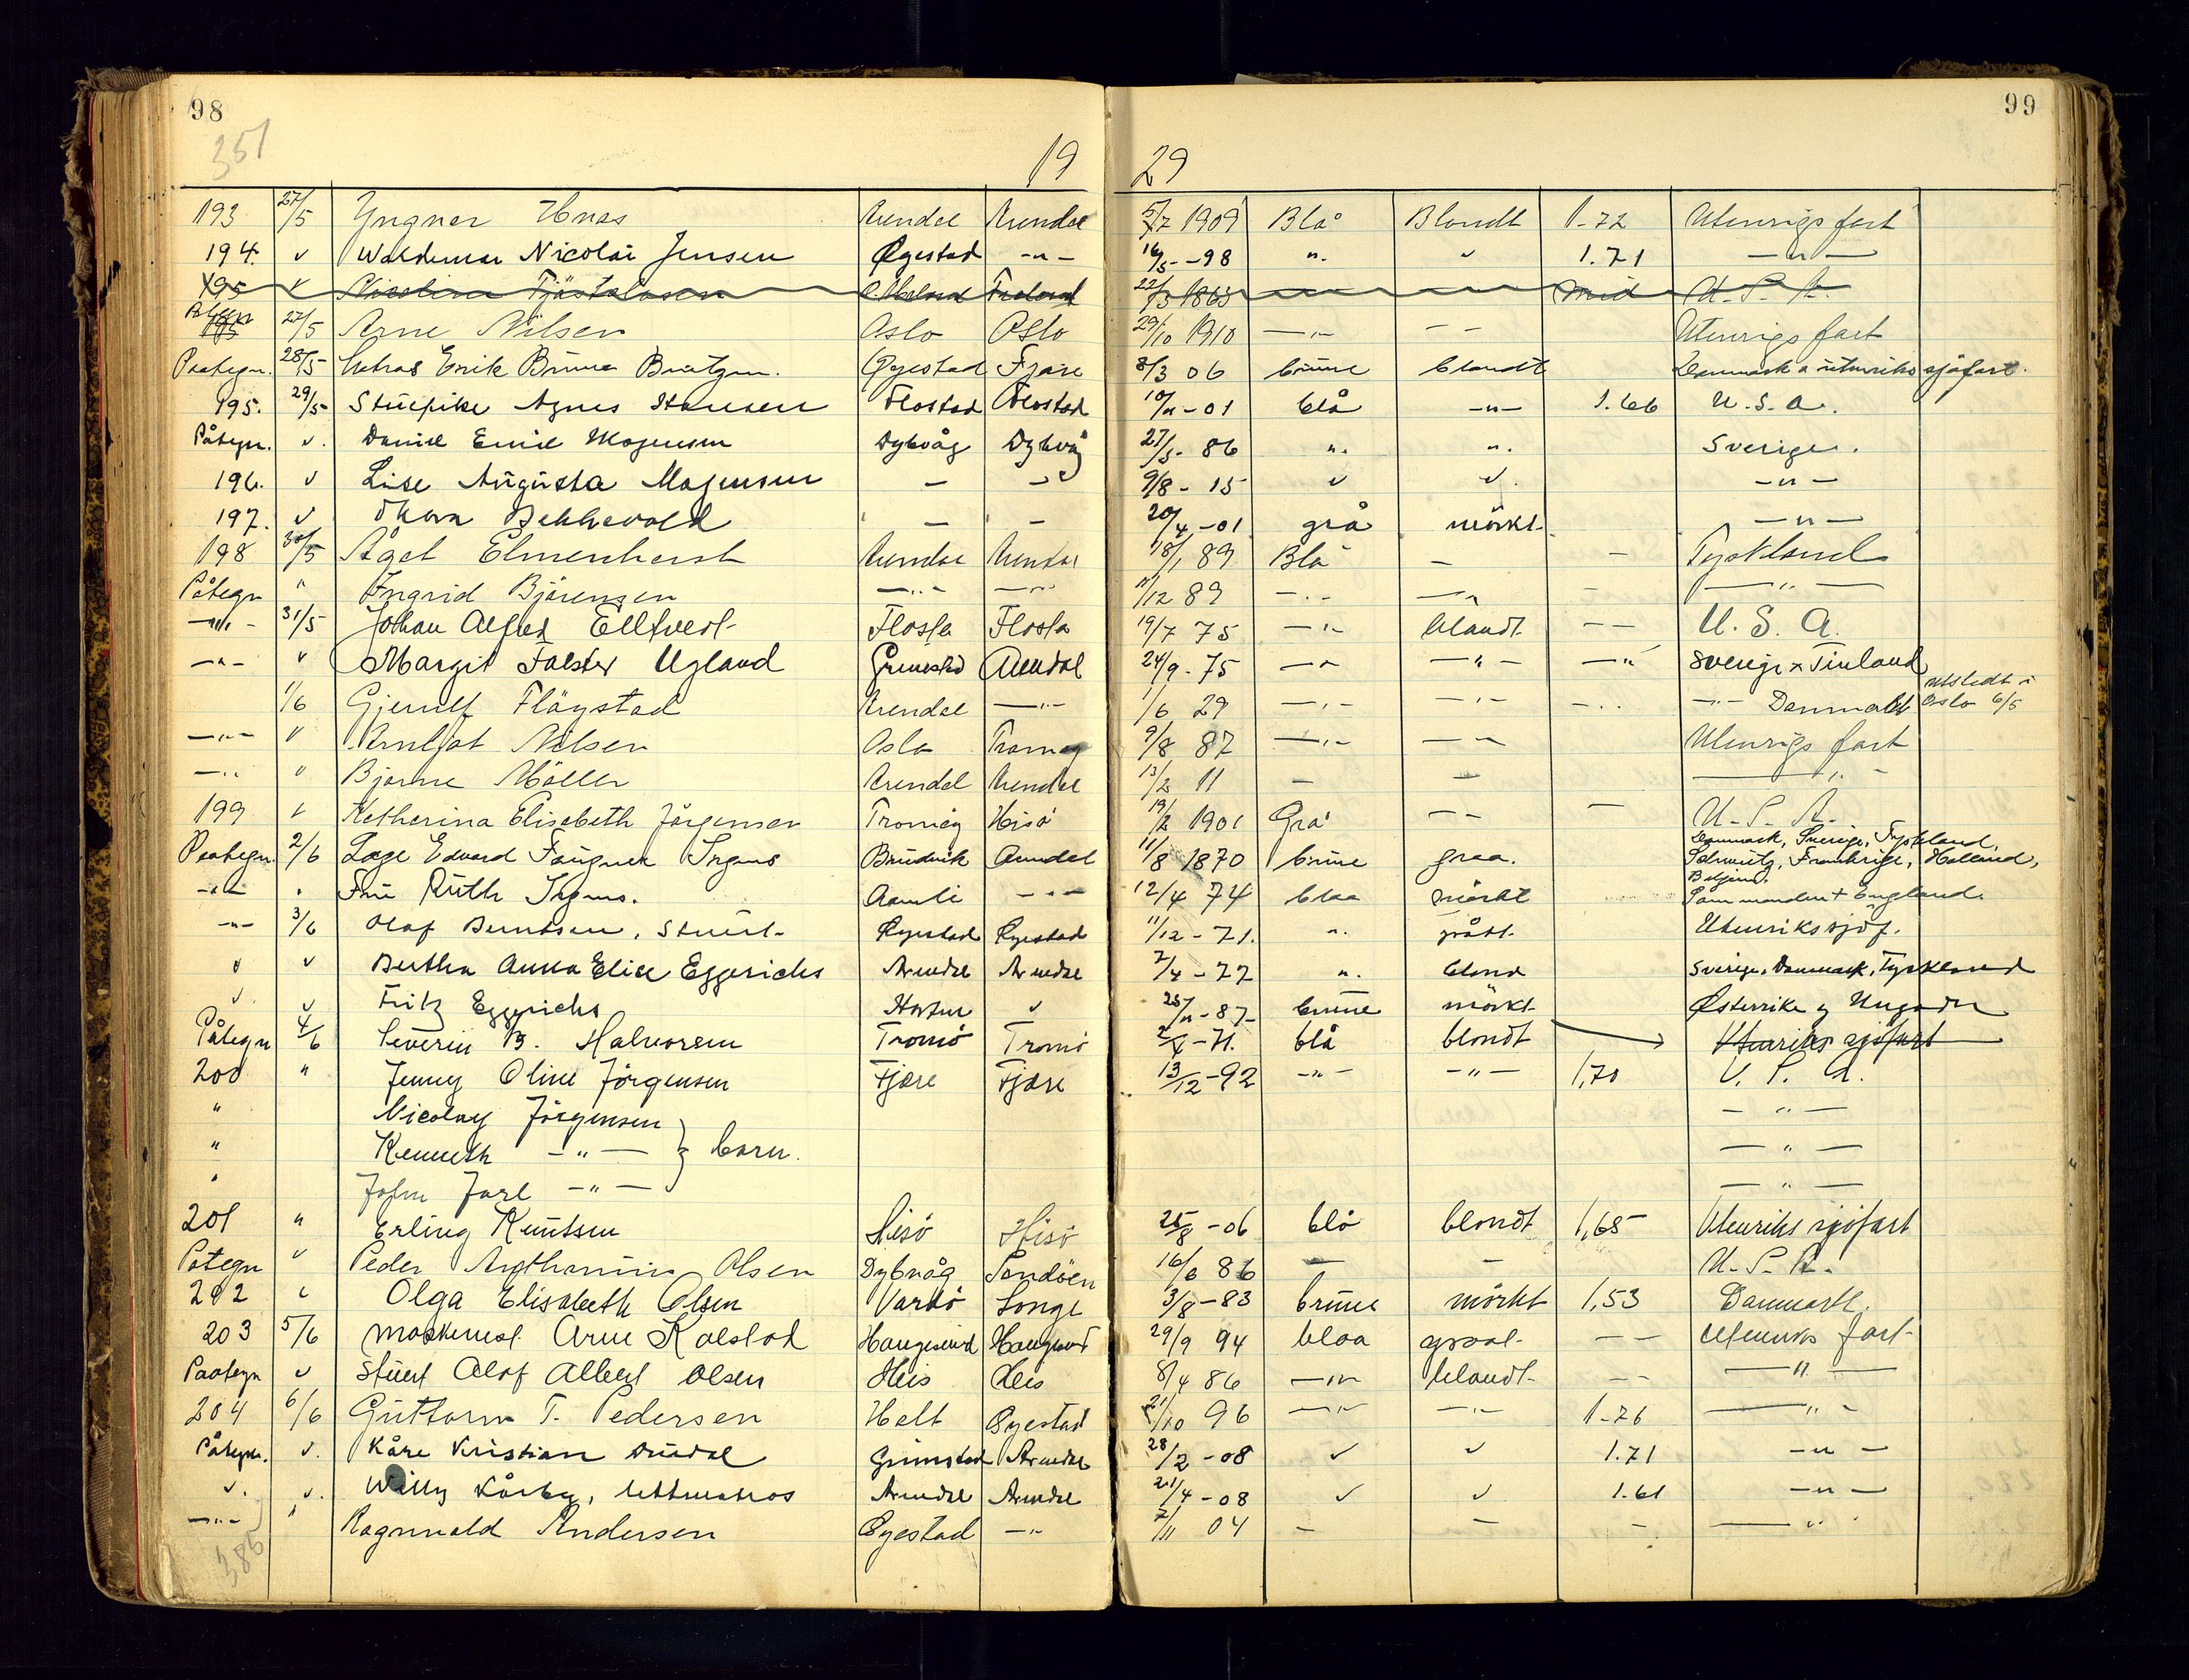 98
99
351
19 29
193 27/5 Yngvar Arendal Arendal 1909 Blå Blondt 1-72 Utenrigs fart
194. v Waldemar Nicolai Jensen Øyestad -"- 16/5 -98 ". v 1.71 -"-
195 v 22/3 1865 U. S. A.
27/5 Arne Nilsen Oslo Oslo 29/10 1910 -"- - - Utenrigs fart
Paategn. 28/5 Erik Øyestad Fjære 8/3 06 brune blondt Danmark a utenriks sjøfart.
195. 29/5 Stuepike Agnes Hansen Flostad Flostad 10/11-01 blå -"- 1.66 U.S.A.
Påtegn. v. Daniel Emil Mogensen Dybvåg Dybvåg 27/5- 86 ". ". Sverige.
196. v Lise Augusta Mogensen - - 9/8 - 15 v v. -"-
197. v Thora - - 20/4 -01 grå mörkt. -"-
198 30/5 Ågot Elmenhorst Arendal Arendal 18/1 89 Blå - - Tyskland
Påtegn " Ingrid Björensen -"- -"- 11/12 89 -"- -"- - -"-
-"- 31/5 Johan Alfred Flosta Flosta 19/7 75 -"- blondt. - - U. S. A.
-"- v Margit Falster Ugland Grimstad Arendal 24/9 - 75 -"- -"- -"- Sverige x Finland
1/6 Gjerulf Flöystad Arendal -"- 1/6 29 -"- -"- -"- -"- Danmark utstedt i Oslo 6/5
-"- v Arnljot Nilsen Oslo Tromøy 9/8 87 -"- - - Utenrigs fart
-"- v Bjarne Möller Arendal Arendal 13/2 11 - - -"-
199 v Katherina Elisabeth Jörgensen Tromøy Hisö 19/2 1901 Grå - - - U. S. A.
Paategn. 2/6 Lage Edvard Fougner Arendal 11/8 1870 brune graa. Danmark, Sverige, Tyskland, Schweitz, Frankrige, Holland, Belgien.
-"- " Fru Ruth Aamli -"- 12/4 74 blaa mörkt England.
-"- 3/6 Olof Berntsen, Stuert. Øyestad Øyestad 11/12 - 71. ". grått. Utenriks sjöf.
v v Bertha Anna Elise Eggerichs Arendal Arendal 2/4 - 77 ". blond Sverige, Danmark, Tyskland
v v Fritz Eggerichs v 25/11 - 87 brune mörkt Østerrike og Ungarn
Påtegn 4/6 Severin B. Halvorsen Tromö Tromö -71. blå blondt Utenriks sjöfart
200 " Jenny Oline Jörgensen Fjære Fjære 13/12 -92 -"- -"- 1,70 U. S. A.
" Nicolay Jörgensen -"-
" Kenneth -"- } barn. -"-
" John Jarl -"- -"-
201 " Erling Knutsen Hisö Hisö 25/8 -06 blå blondt 1,65 Utenriks sjöfart
Påtegn v Peder Olsen Dybvåg Sandöen 16/6 86 - - U. S. A.
202 v Olga Elisabeth Olsen Vardö Songe 3/8 -83 brune mörkt 1,53 Danmark.
203 5/6 Maskinist. Arne Kolstad Haugesund Haugesund 29/9 94 blaa graat - - Utenriks fart
Paategn v Stuert Olof Albert Olsen His His 8/4 86 -"- blondt - - -"-
204 6/6 Guttorm T. Pedersen Holt Øyestad 21/10 96 -"- -"- 1-76 -"-
Påtegn. v. Kåre Kristian Grimstad Arendal 28/2 -08 v v 1.71 -"-
v. v. Willy Kårby, lettmatros Arendal Arendal 21/4 -08 v v 1.61 -"-
-"- " Ragnvald Andersen Øyestad -"- 7/11 04 - - - -"-
386